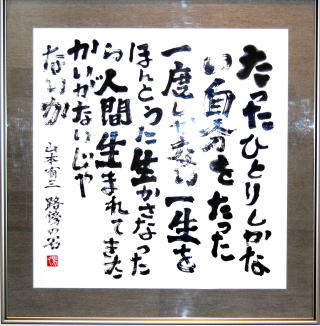 たったひとりしかな
い自分をたった
一度しかない一生を
ほんとうに生かさなかった
ら人間生まれてきた
かいがないじゃ
ないか
山本有三 路傍の石